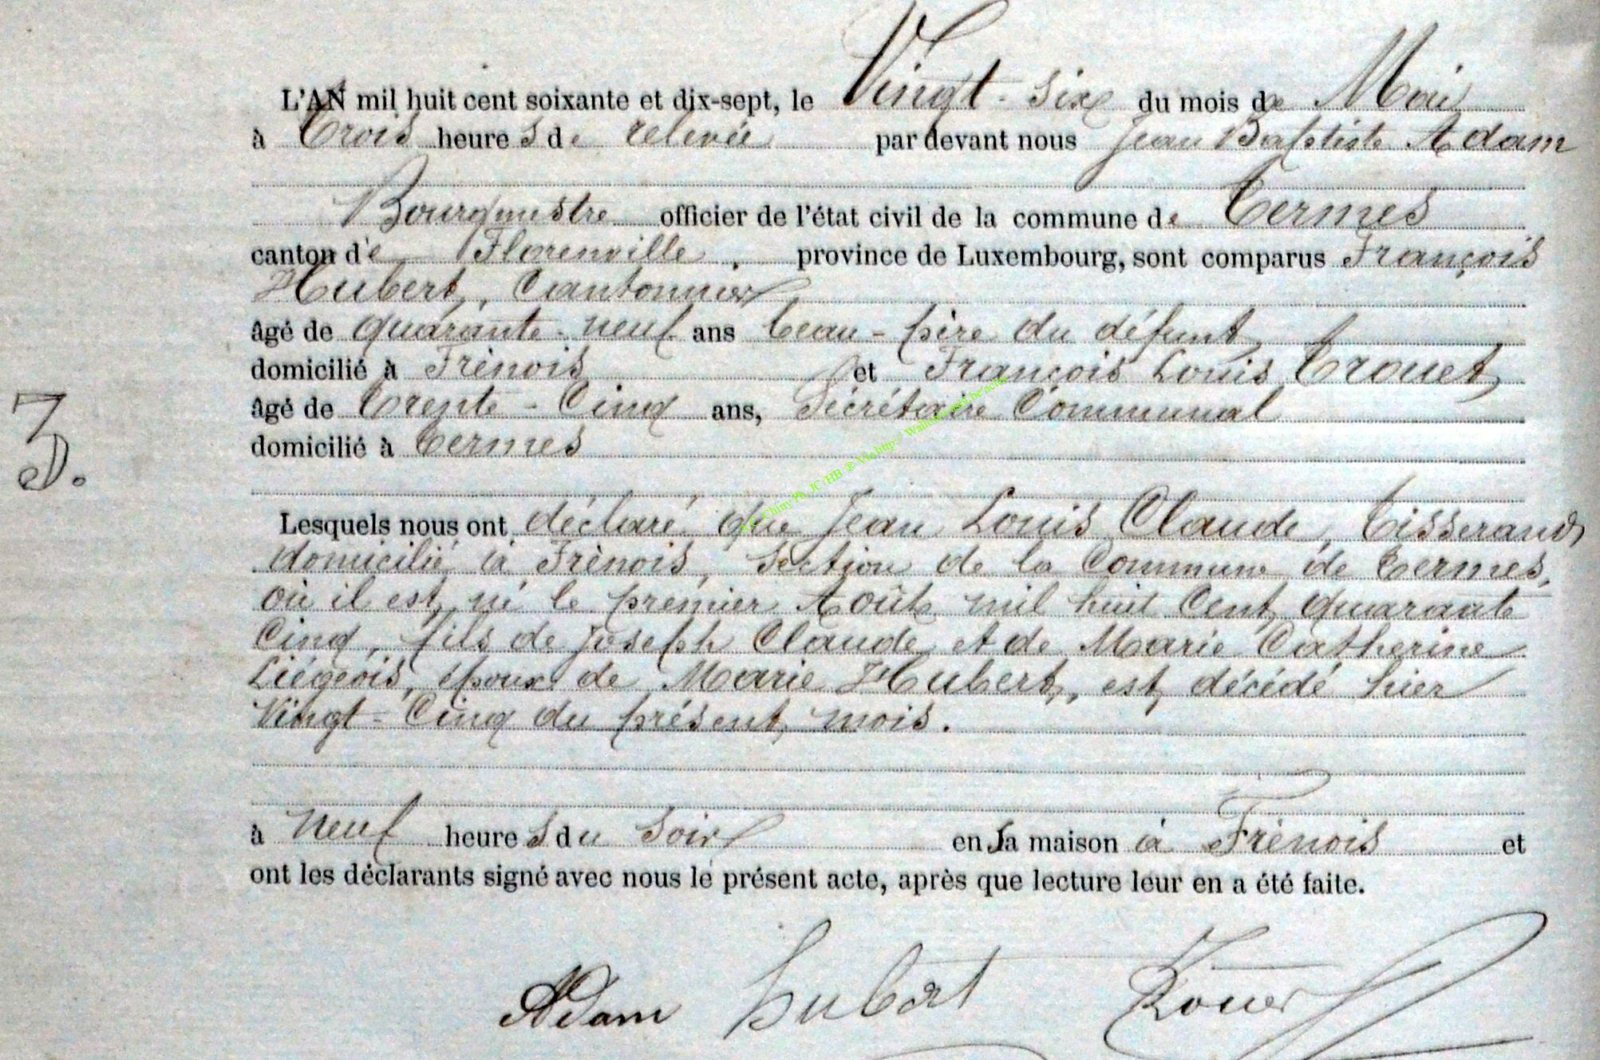 L'AN mil huit cent soixante et dix-sept, le Vingt-six du mois de Mai
à Trois heures de relevée par devant nous Jean Baptiste Adam
Bourgmestre officier de l'état civil de la commune de Termes
canton de Florenville, province de Luxembourg, sont comparus François
Hubert, Cantonnier
âgé de quarante-neuf ans beau-père du défunt
domicilié à Frénois et François Louis Trouet
âgé de trente-Cinq ans, Secrétaire Communal
domicilié à Termes
3
D.
Lesquels nous ont déclaré que Jean Louis Claude, Tisserand
domicilié à Frénois, Section de la Commune de Termes,
où il est né le premier Août mil huit Cent quarante
Cinq, fils de Joseph Claude et de Marie Catherine
Liégeois, époux de Marie Hubert, est décédé hier
Vingt-Cinq du présent mois.
à neuf heures du soir en sa maison à Frénois et
ont les déclarants signé avec nous le présent acte, après que lecture leur en a été faite.
Adam Hubert